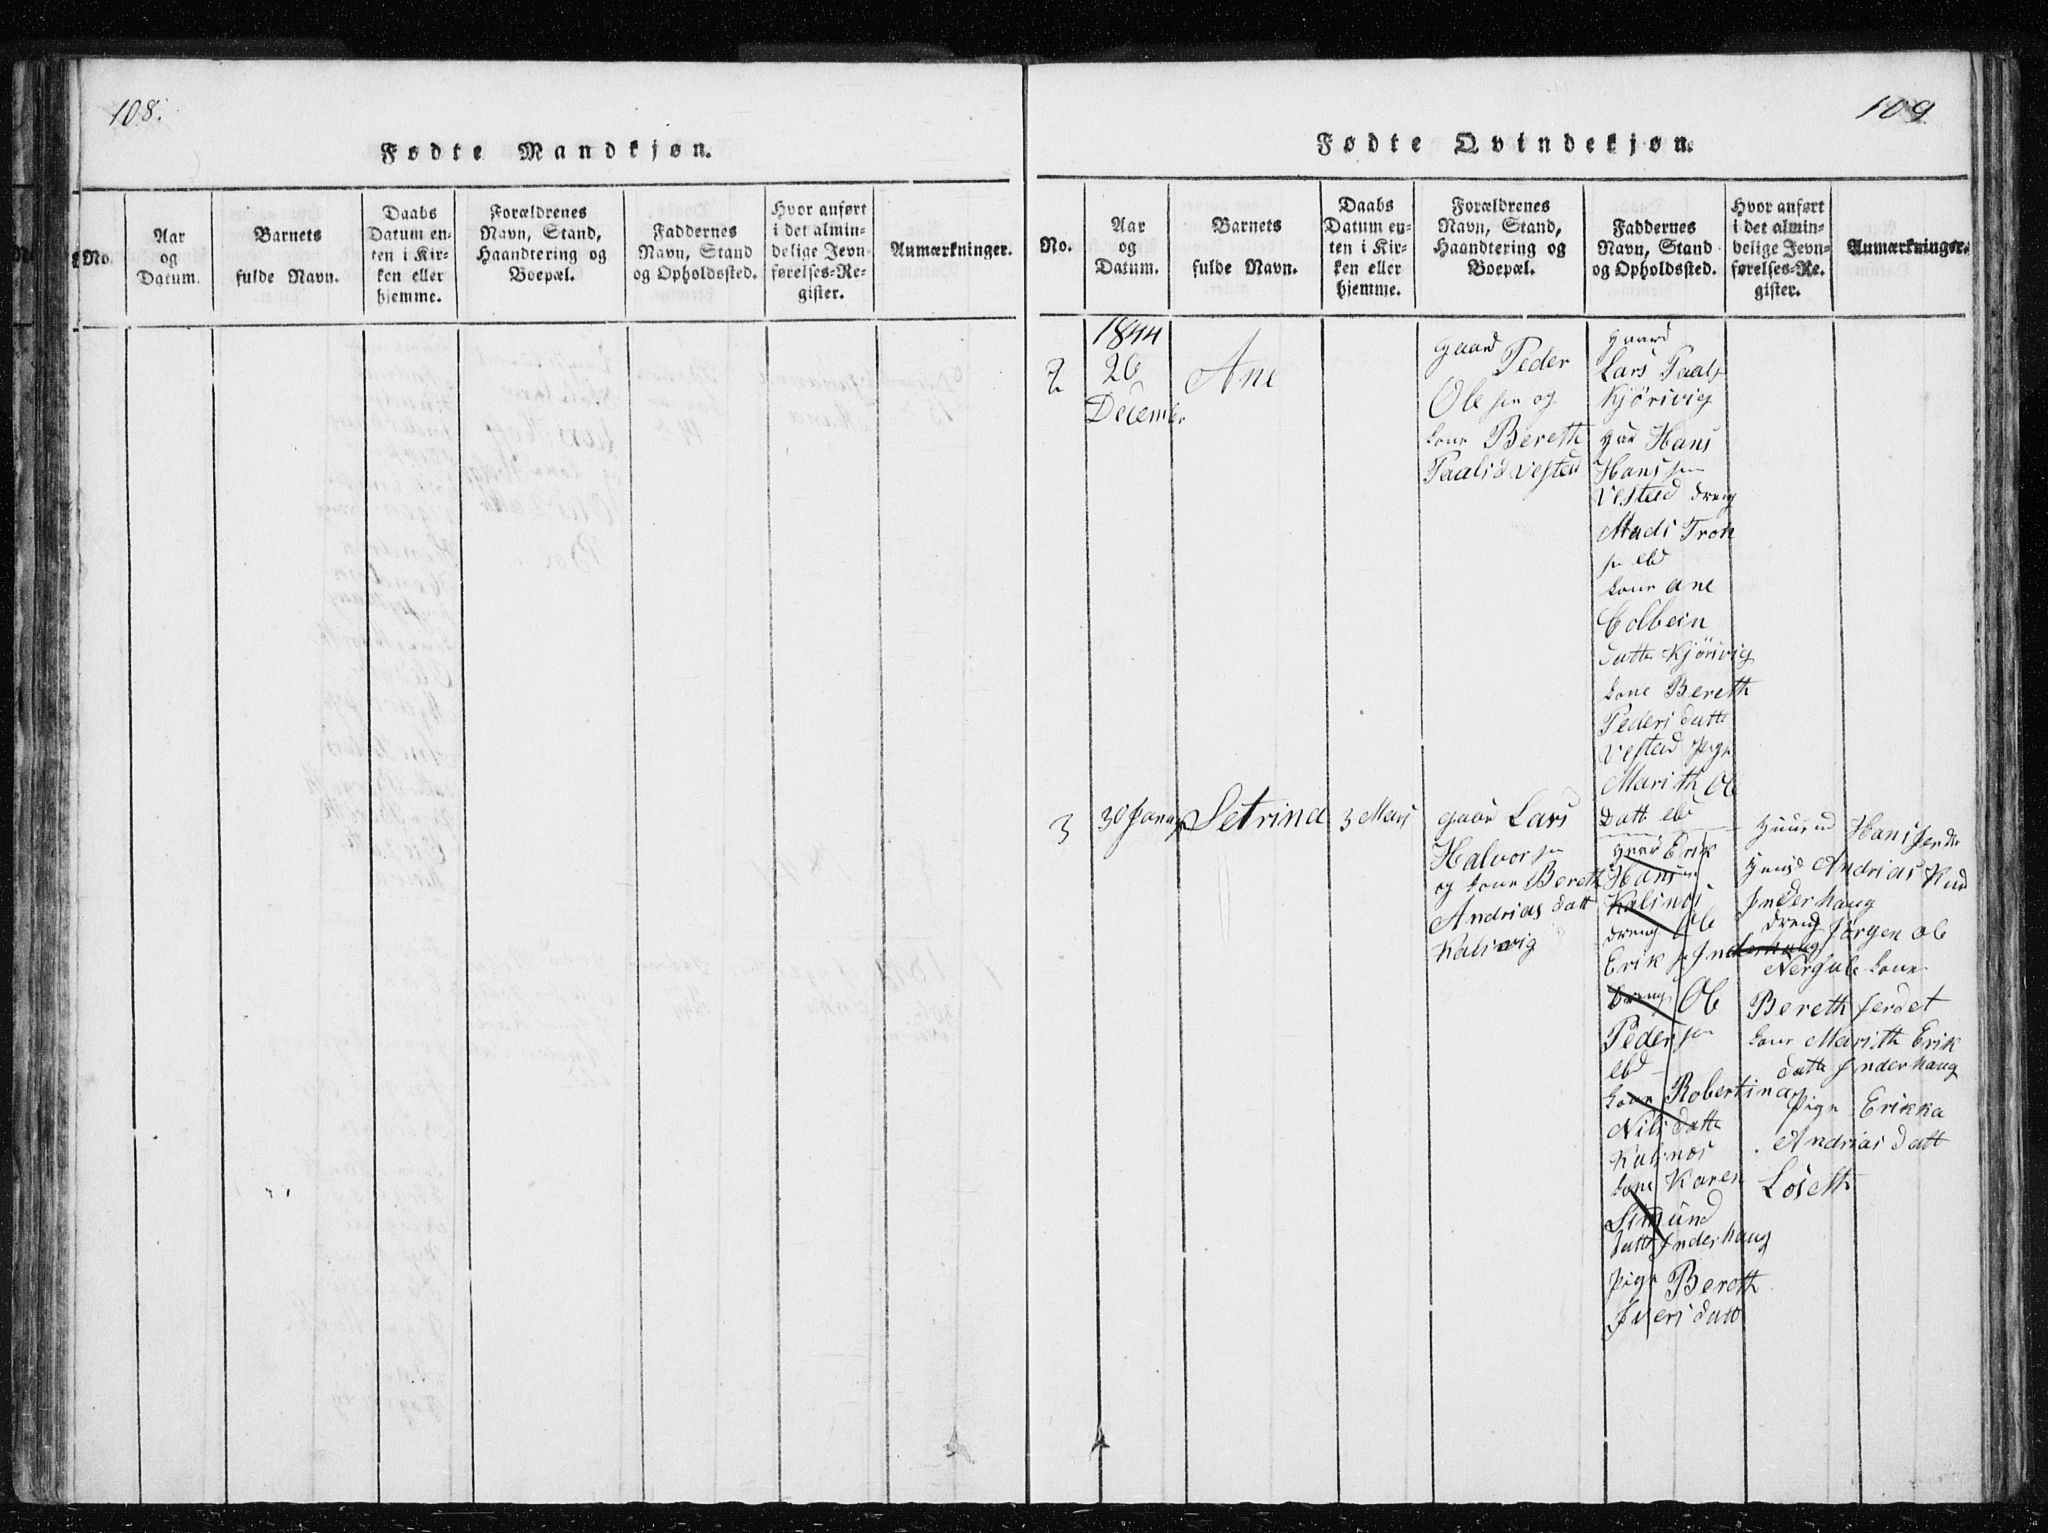 108.
Fødte Mandkjøn.
No.
Aar
og
Datum.
Barnets
fulde Navn.
Daabs
Datum en-
ten i Kir-
ken eller
hjemme.
Forældrenes
Navn, Stand,
Haandtering og
Boepæl.
Faddernes
Navn, Stand
og Opholdssted.
Hvor anført
i det almin-
delige Jevn-
førelses-Re-
gister.
Anmærkninger.
109
Fødte Qvindekjøn.
No.
Aar
og
Datum.
Barnets
fulde Navn.
Daabs
Datum en-
ten i Kir-
ken eller
hjemme.
Forældrenes
Navn, Stand,
Haandtering og
Boepæl.
Faddernes
Navn, Stand
og Opholdssted.
Hvor anført
i det almin-
delige Jevn-
førelses-Re-
gister.
Anmærkninger.
2
1844
26
December
Ane
gaard Peder
Ole sen og
kone Bereth
Paals d Vestad
gaard
Lars Paals
Kjørivig
Hans
Hans sen
Vestad dreng
Mads Tron
s ebd
kone Ane
Colbein
datte Kjørivig
kone Bereth
Peders datte
Vestad
Marith Ole
Datt ebd
3
30 Janua
Setrina
3 Mars
gaar Lars
Halvor sen
og kone Bereth
Andrias datt
Kalsvig
Erik
Hans
Kalsnøs
dreng Ole
Erik s Inderhaug
dreng Ole
Peder sen
ebd
kone Robertina
Nils datte
Kalsnøs
kone Karen
Simund
datte Inderhaug
pige Bereth
Ivers datt
Hans
Andrias Knud
Inderhaug
dreng Jørgen Ole
kone
Bereth
kone Marith Erik
datte Inderhaug
pige Erikka
Andrias datt
Løseth